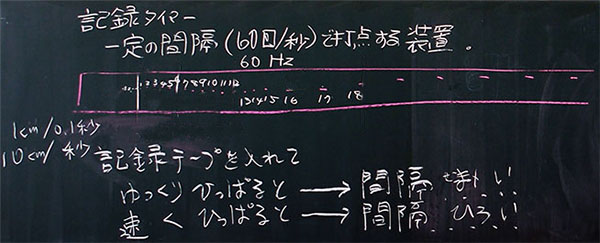 記録タイマー
一定の間隔(60回/秒)で打点する装置。
60 Hz
1 2 3 4 5 6 7 8 9 10 11 12
13 14 15 16 17 18
1cm/0.1秒
10cm/秒
記録テープを入れて
ゆっくりひっぱると→間隔せまい
速くひっぱると→間隔ひろい